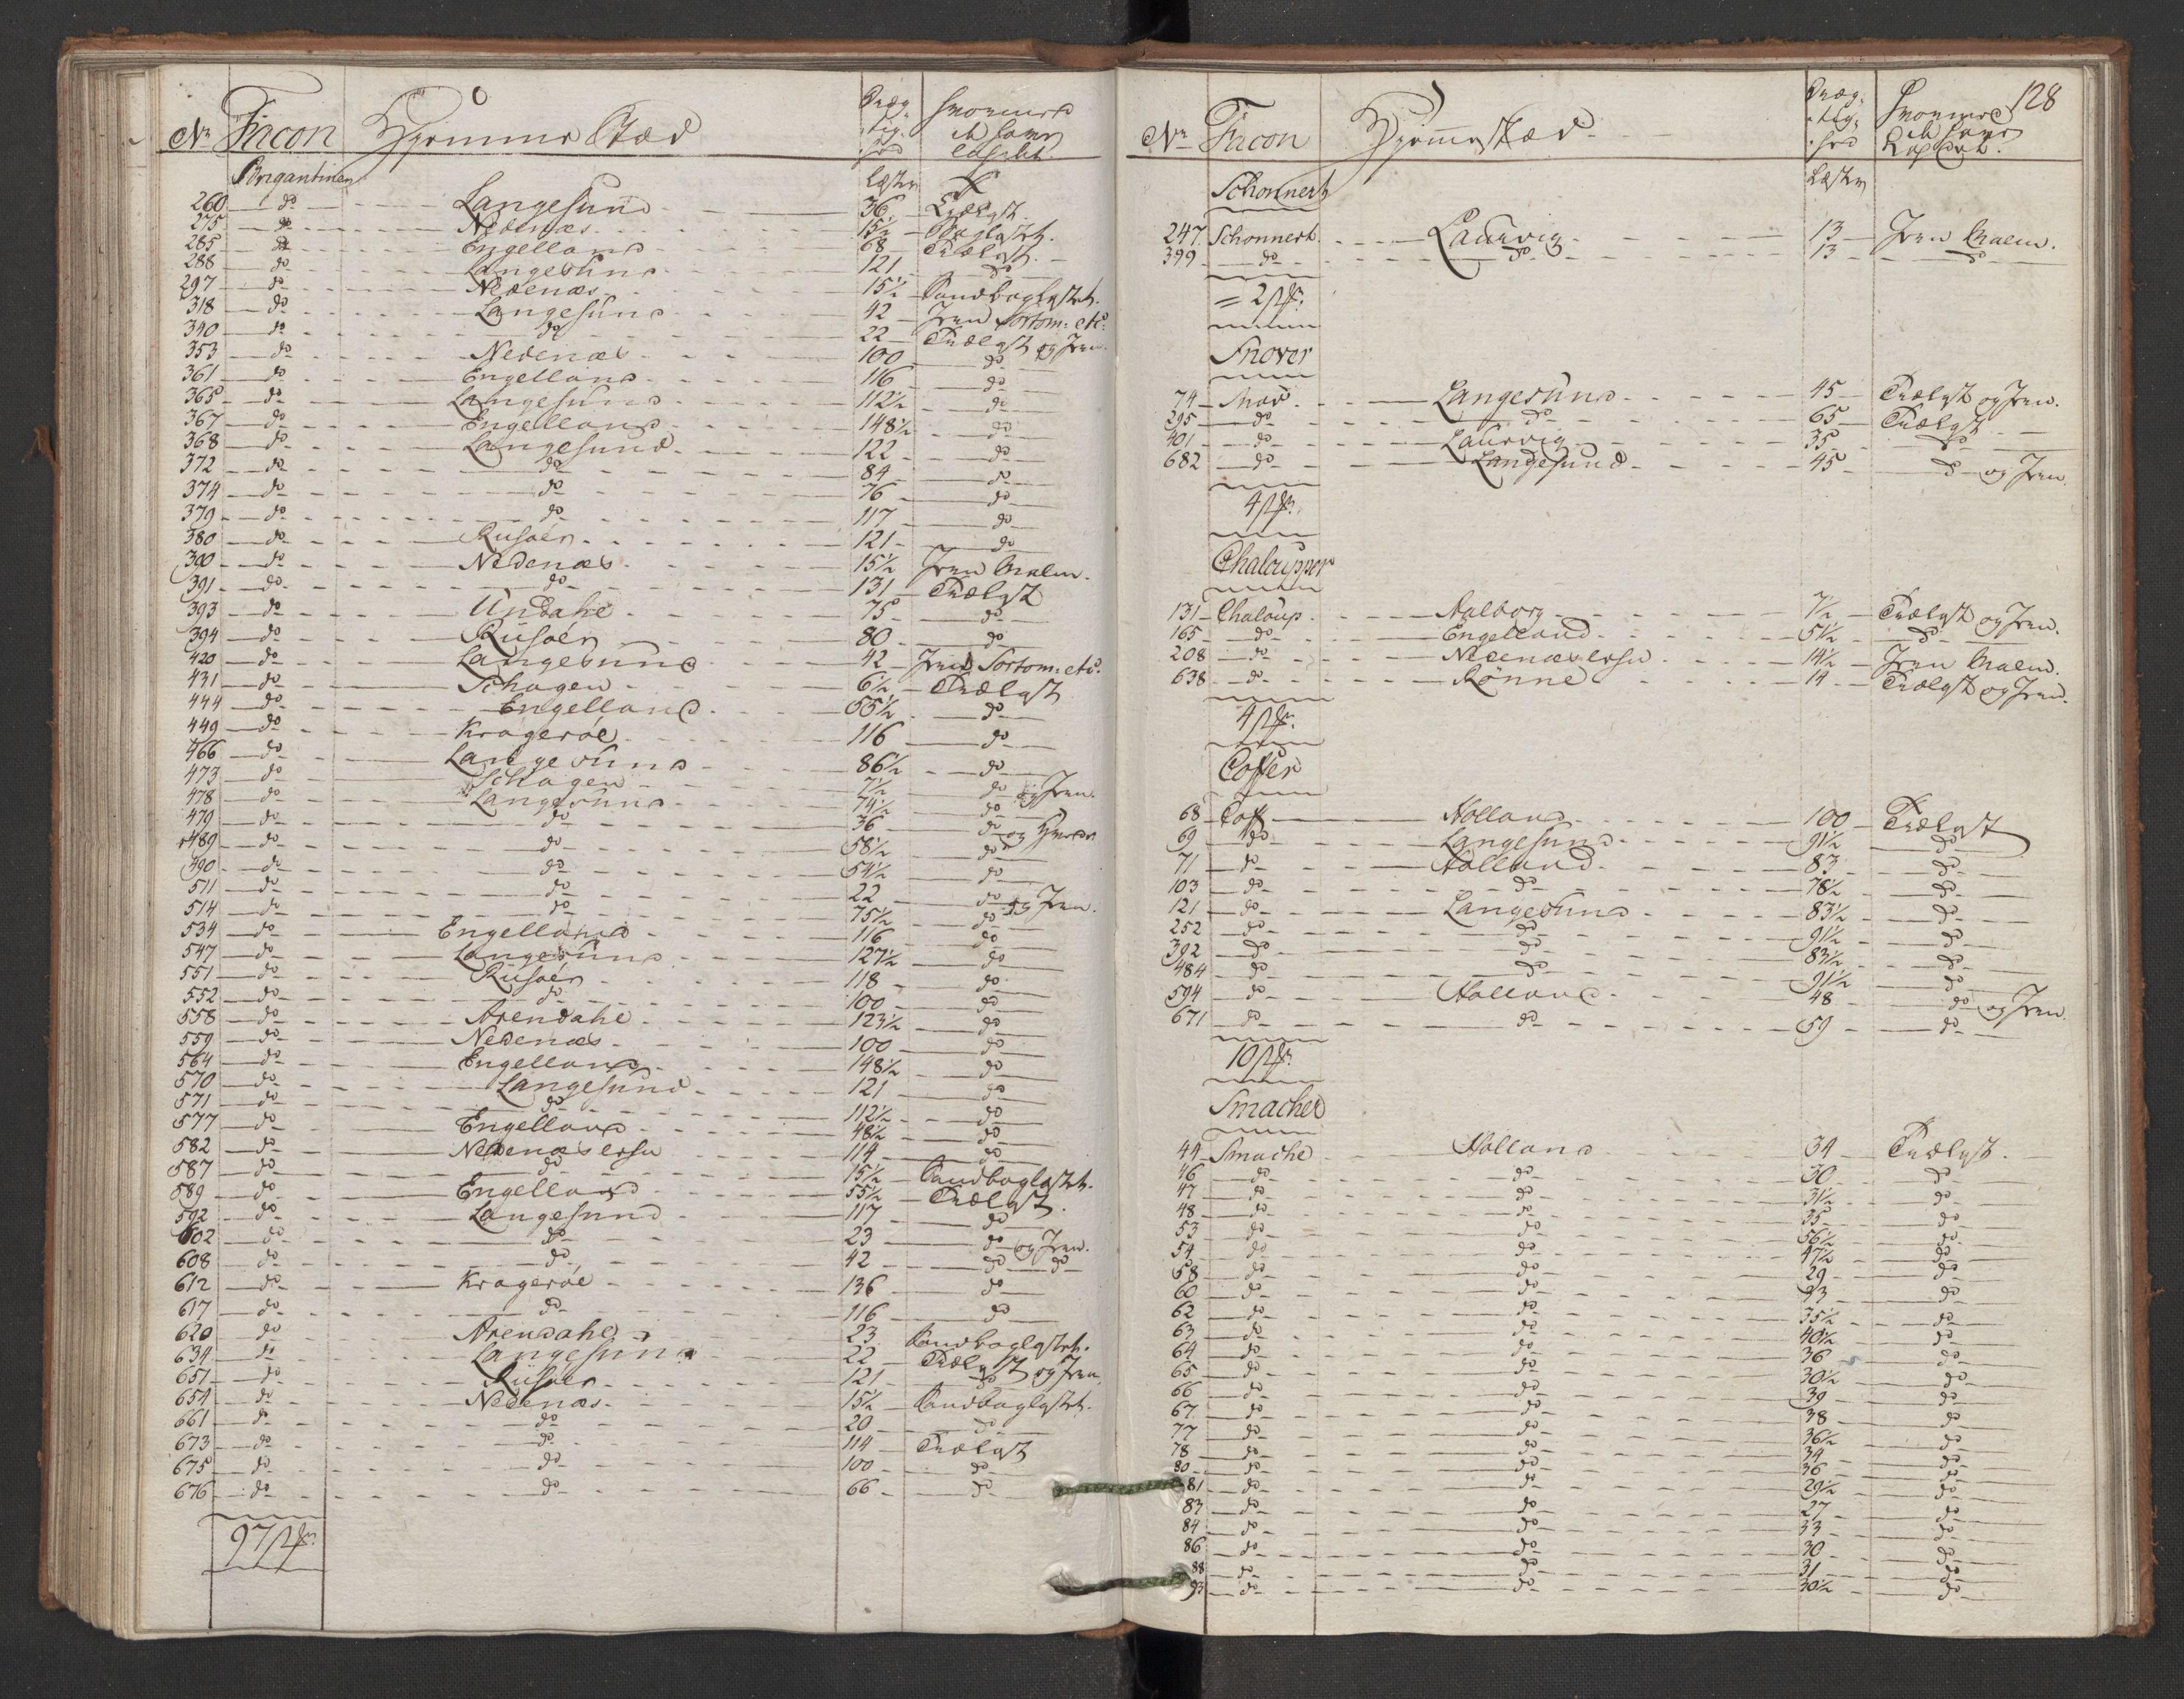 No Facon Hiemme Stæd Dræg-tig-hed
Brigantiner Læster
260 do Langesund 36 Trælast
275 do Nedenæs 15½ Baglastet.
285 do Engelland 68 Trælast.
288 do Langesund 121 do
297 do Nedenæs 15½ Baglastet.
318 do Langesund 42 Jern Sortom: etc.
340 do do 22 Trælast og Jern.
353 do Nedenæs 100 do
361 do Engelland 116 do
365 do Langesund 112½ do
367 do Engelland 148½ do
368 do Langesund 122 do
372 do do 84 do
374 do do 76 do
379 do do 117 do
380 do Risøer 121 do
390 do Nedenæs 15½ Jern Malm.
391 do do 131 Trælast
393 do Undahl 75 do
394 do Risøer 80 do
420 do Langesund 42 Jern Sortom: etc.
431 do Schagen 6½ Trælast
444 do Engelland 55½ do
449 do Kragerøe 116 do
466 do Langesund 86½ do
473 do Schagen 7½ do og Jern.
478 do Langesund 74½ do
479 do do 36 do og
489 do do 58½ do
490 do do 54½ do
511 do do 22 do og Jern.
514 do do 75½ do
534 do Engelland 116 do
547 do Langesund 127½ do
551 do Risøer 118 do
552 do do 100 do
558 do Arendahl 123½ do
559 do Nedenæs 100 do
564 do Engelland 148½ do
570 do Langesund 121 do
571 do do 112½ do
577 do Engelland 48½ do
582 do Nedenæs 114 do
587 do do 15½ Baglastet.
589 do Engelland 55½ Trælast.
592 do Langesund 117 do
602 do do 23 do og Jern.
608 do do 42 do do
612 do Kragerøe 136 do
617 do do 116 do
620 do Arendahl 23 Baglastet.
634 do Langesund 22 Trælast og Jern.
651 do Risøer 121 do
654 do Nedenæs 15½ Baglastet.
661 do do 20 do
673 do do 114 Trælast
675 do do 100 do
676 do do 66 do
97 st:
128
No Facon Hiemmestæd Dræg-tig-hed
Læster
Schonnert
247 Schonnert Laurvig 13 Jern Malm.
399 do do 13 do
= 2 st:
Snover
74 Snov Langesund 45 Trælast og Jern.
295 do do 65 Trælast
401 do Laurvig 35 do
682 do Langesund 45 do og Jern
4 st:
Chalupper
131 Chaloup Aalborg 7½ Trælast og Jern.
165 do Engelland 51½ do
208 do Nedenæs 14½ Jern Malm.
638 do Rønne 14 Trælast og Jern.
4 st:
Coffer
68 Coff Holland 100 Trælast
69 do Langesund 91½ do
71 do Holland 83 do
103 do do 78½ do
121 do Langesund 83½ do
252 do do 91½ do
392 do do 83½ do
484 do do 91½ do
594 do Holland 48 do og Jern
671 do do 59 do
10 st:
Smacher
44 Smache Holland 34 Trælast.
46 do do 30 do
47 do do 31½ do
48 do do 35 do
53 do do 56½ do
54 do do 47½ do
58 do do 29 do
60 do do 33 do
62 do do 35½ do
63 do do 40½ do
64 do do 36 do
65 do do 30½ do
66 do do 39 do
67 do do 38 do
77 do do 36½ do
78 do do 34 do
80 do do 36 do
81 do do 29½ do
83 do do 27 do
84 do do 33 do
86 do do 30 do
88 do do 31 do
93 do do 30½ do